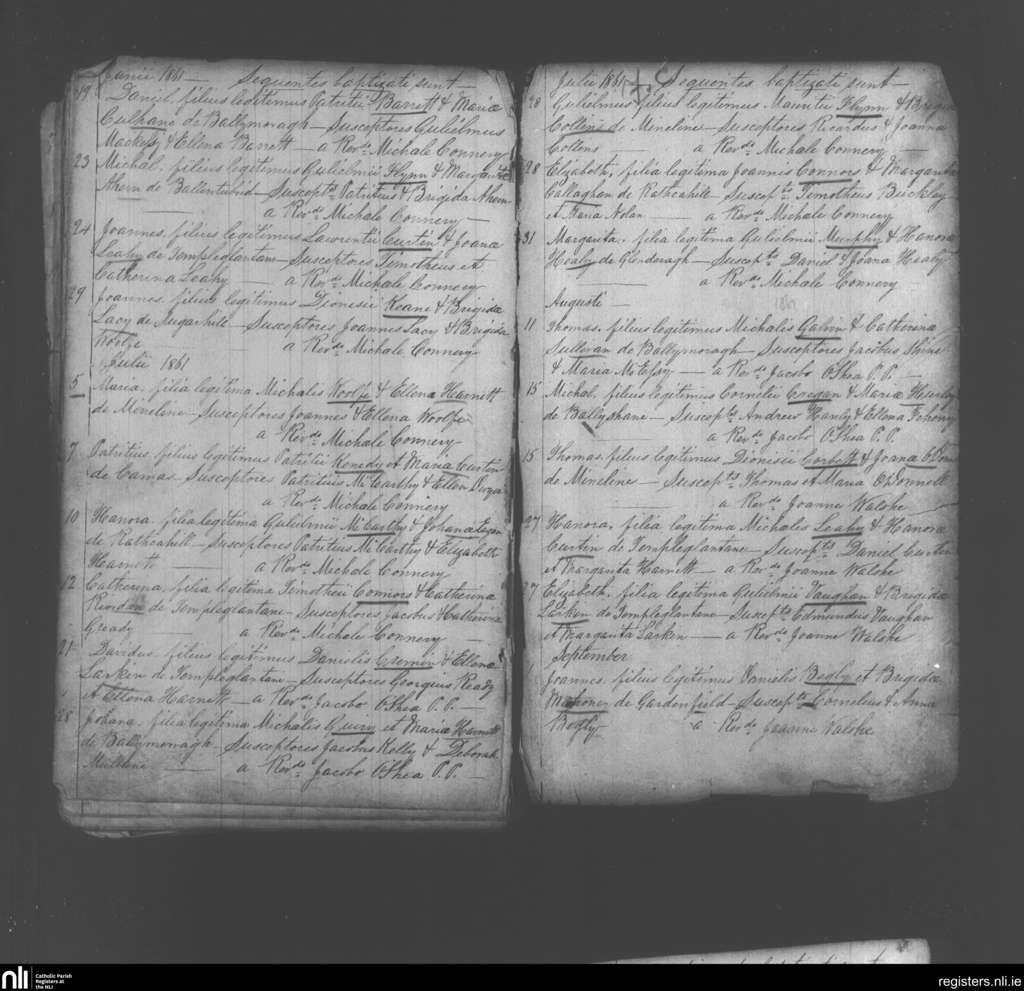 Junii 1861 — Sequentes baptizati sunt —
19 Daniel, filius legitimus Patritii Barrett & Maria
Culhane de Ballymoragh — Susceptores Gulielmus
Mackessy & Ellena Barrett — a Revdo Michale Connery
23 Michal, filius legitimus Gulielmii Flynn & Margarita
Ahern de Ballintubrid — Susceptts Patritius & Brigida Ahern
— a Revdo Michale Connery —
24 Joannes, filius legitimus Lawrentii Curtin & Joana
Leahy de Templeglantane — Susceptores Timotheus et
Catherina Leahy a Revdo Michale Connery
29 Joannes, filius legitimus Dionesii Keane & Brigida
Lacy de Sugarhill — Susceptores Joannes Lacy & Brigida
Woolfe — a Revdo Michale Connery
Julii 1861
5 Maria, filia legitima Michalis Woolfe & Ellena Harnett
de Meneline — Susceptores Joannes & Ellena Woolfe
a Revdo Michale Connery —
7 Patritius, filius legitimus Patritii Kenedy et Maria Curtin
de Camas Susceptores Patritius McCarthy & Ellen
a Revdo Michale Connery
10 Hanora, filia legitima Gulielmii McCarthy & Johana Eagan
de Rathcahill — Susceptores Patritius McCarthy & Elizabeth
Harnett — a Revdo Michale Connery
12 Catherina, filia legitima Timotheii Connors & Catherina
Riordan de Templeglantane — Susceptores Jacobus & Catherina
Gready — a Revdo Michale Connery —
21 Davidus, filius legitimus Danielis Cremin & Ellena
Larkin de Templeglantane — Susceptores Georgius Ready
et Ellena Harnett — a Revdo Jacobo O'Shea P.P. —
28 Johana, filia legitima Michalis Quiry et Maria Harnett
de Ballymorragh — Susceptores Jacobus Kelly & Deborah
— a Revdo Jacobo O'Shea P.P. —
Julii 1861 Sequentes baptizati sunt —
28 Gulielmus filius legitimus Mauritii Flynn & Brigida
Collins de Meneline — Susceptores Ricardus & Joanna
Collens — a Revdo Michale Connery —
28 Elizabeth, filia legitima Joannes Connors & Margarita
Callaghan de Rathcahill — Susceptts Timotheus Buckley
et Maria Nolan — a Revdo Michale Connery
31 Margarita, filia legitima Gulielmii Murphy & Hanora
Healy de Glenderagh — Susceptts Daniel & Joana Healy
— a Revdo Michale Connery
Augusti — 1861
11 Thomas, filius legitimus Michalis Galvin & Catherina
Sullevan de Ballymoragh — Susceptores Jacobus Shine
& Maria McEssy — a Revdo Jacobo O'Shea P.P. —
15 Michal, filius legitimus Cornelii Creegan & Maria Hanly
de Ballyshane — Susceptts Andreas Hanly & Ellena
— a Revdo Jacobo O'Shea P.P.
15 Thomas, filius legitimus Dionisii Corbett & Joana O'Donnell
de Meneline — Susceptts Thomas et Maria O'Donnell
— a Revdo Joanne Walshe
27 Hanora, filia legitima Michalis Leahy & Hanora
Curtin de Templeglantane — Susceptts Daniel Curtin
et Margarita Harnett — a Revdo Joanne Walshe
27 Elizabeth, filia legitima Gulielmii Vaughan & Brigida
Larken de Templeglantane — Susceptts Edmundus Vaughan
et Margarita Larken — a Revdo Joanne Walshe
September
1 Joannes, filius legitimus Danielis Begly et Brigida
Mahoney de Gardenfield — Susceptts Cornelius & Anna
Begly — a Revdo Joanne Walshe
nli
Catholic Parish
Registers at
the NLI
registers.nli.ie